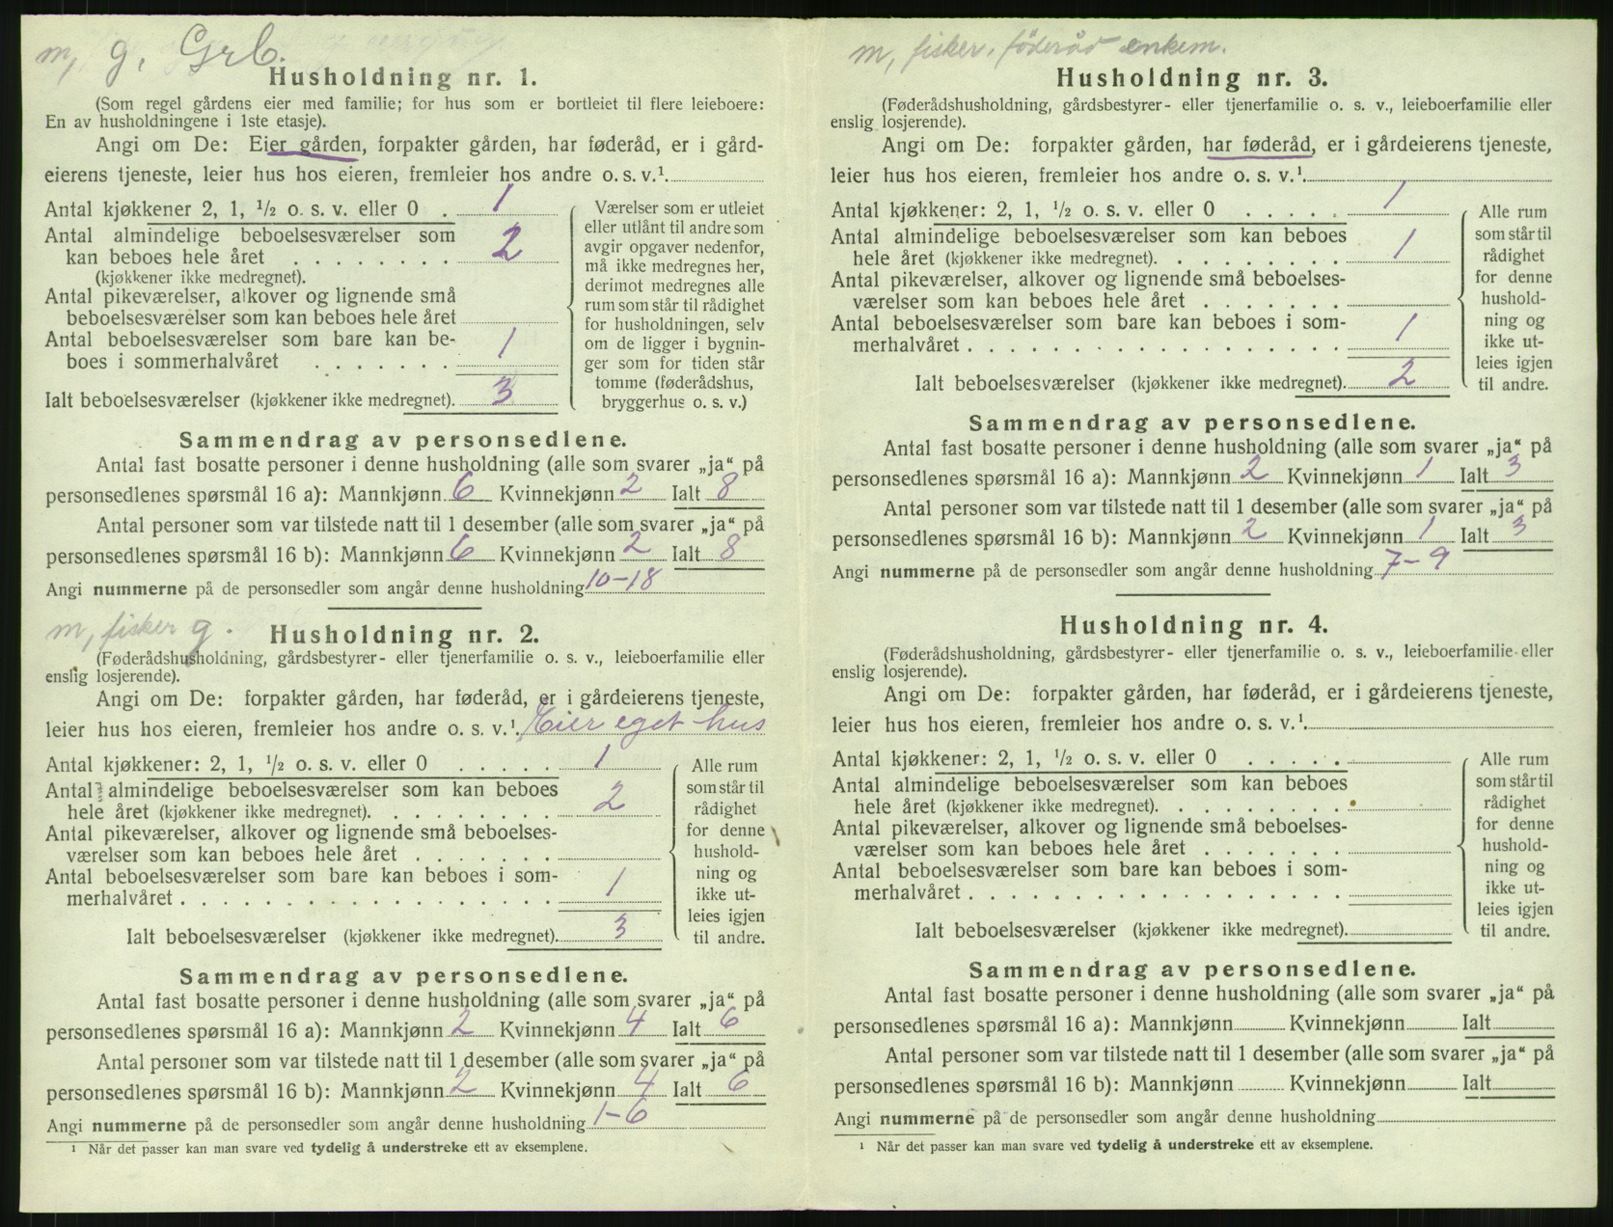 m, g. Grb.
Husholdning nr. 1.
(Som regel gårdens eier med familie; for hus som er bortleiet til flere leieboere:
En av husholdningene i 1ste etasje).
Angi om De: Eier gården, forpakter gården, har føderåd, er i gård-
eierens tjeneste, leier hus hos eieren, fremleier hos andre o. s. v.¹
Antal kjøkkener 2, 1, ½ o. s. v. eller 0 . 1
Antal almindelige beboelsesværelser som
kan beboes hele året . . . . . . . . 2
(kjøkkener ikke medregnet).
Antal pikeværelser, alkover og lignende små
beboelsesværelser som kan beboes hele året
Antal beboelsesværelser som bare kan be-
boes i sommerhalvåret . . . . . . . 1
Ialt beboelsesværelser (kjøkkener ikke medregnet). 3
Værelser som er utleiet
eller utlånt til andre som
avgir opgaver nedenfor,
må ikke medregnes her,
derimot medregnes alle
rum som står til rådighet
for husholdningen, selv
om de ligger i bygnin-
ger som for tiden står
tomme (føderådshus,
bryggerhus o. s. v.)
Sammendrag av personsedlene.
Antal fast bosatte personer i denne husholdning (alle som svarer „ja“ på
personsedlenes spørsmål 16 a): Mannkjønn 6 Kvinnekjønn 2 Ialt 8
Antal personer som var tilstede natt til 1 desember (alle som svarer „ja“ på
personsedlenes spørsmål 16 b): Mannkjønn 6 Kvinnekjønn 2 Ialt 8
Angi nummerne på de personsedler som angår denne husholdning 10-18
m, fisker g.
Husholdning nr. 2.
(Føderådshusholdning, gårdsbestyrer- eller tjenerfamilie o. s. v., leieboerfamilie eller
enslig losjerende).
Angi om De: forpakter gården, har føderåd, er i gårdeierens tjeneste,
leier hus hos eieren, fremleier hos andre o. s. v.¹ Eier eget hus
Antal kjøkkener: 2, 1, ½ o. s. v. eller 0 . . . . . 1
Antal almindelige beboelsesværelser som kan beboes
hele året (kjøkkener ikke medregnet). . . . . . . . . 2
Antal pikeværelser, alkover og lignende små beboelses-
værelser som kan beboes hele året . . . . . . .
Antal beboelsesværelser som bare kan beboes i som-
merhalvåret . . . . . . . . . . . . . . . . . . 1
Ialt beboelsesværelser (kjøkkener ikke medregnet). 3
Alle rum
som står til
rådighet
for denne
hushold-
ning og
ikke ut-
leies igjen
til andre.
Sammendrag av personsedlene.
Antal fast bosatte personer i denne husholdning (alle som svarer „ja“ på
personsedlenes spørsmål 16 a): Mannkjønn 2 Kvinnekjønn 4 Ialt 6
Antal personer som var tilstede natt til 1 desember (alle som svarer „ja“ på
personsedlenes spørsmål 16 b): Mannkjønn 2 Kvinnekjønn 4 Ialt 6
Angi nummerne på de personsedler som angår denne husholdning 1-6
¹ Når det passer kan man svare ved tydelig å understreke ett av eksemplene.
m, fisker, føderåd enkem.
Husholdning nr. 3.
(Føderådshusholdning, gårdsbestyrer- eller tjenerfamilie o. s. v., leieboerfamilie eller
enslig losjerende).
Angi om De: forpakter gården, har føderåd, er i gårdeierens tjeneste,
leier hus hos eieren, fremleier hos andre o. s. v.¹
Antal kjøkkener: 2, 1, ½ o. s. v. eller 0 . . . . . 1
Antal almindelige beboelsesværelser som kan beboes
hele året (kjøkkener ikke medregnet). . . . . . . . . 1
Antal pikeværelser, alkover og lignende små beboelses-
værelser som kan beboes hele året . . . . . . .
Antal beboelsesværelser som bare kan beboes i som-
merhalvåret . . . . . . . . . . . . . . . . . . 1
Ialt beboelsesværelser (kjøkkener ikke medregnet). 2
Alle rum
som står til
rådighet
for denne
hushold-
ning og
ikke ut-
leies igjen
til andre.
Sammendrag av personsedlene.
Antal fast bosatte personer i denne husholdning (alle som svarer „ja“ på
personsedlenes spørsmål 16 a): Mannkjønn 2 Kvinnekjønn 1 Ialt 3
Antal personer som var tilstede natt til 1 desember (alle som svarer „ja“ på
personsedlenes spørsmål 16 b): Mannkjønn 2 Kvinnekjønn 1 Ialt 3
Angi nummerne på de personsedler som angår denne husholdning 7-9
Husholdning nr. 4.
(Føderådshusholdning, gårdsbestyrer- eller tjenerfamilie o. s. v., leieboerfamilie eller
enslig losjerende).
Angi om De: forpakter gården, har føderåd, er i gårdeierens tjeneste,
leier hus hos eieren, fremleier hos andre o. s. v.¹
Antal kjøkkener: 2, 1, ½ o. s. v. eller 0 . . . . .
Antal almindelige beboelsesværelser som kan beboes
hele året (kjøkkener ikke medregnet). . . . . . . . .
Antal pikeværelser, alkover og lignende små beboelses-
værelser som kan beboes hele året . . . . . . .
Antal beboelsesværelser som bare kan beboes i som-
merhalvåret . . . . . . . . . . . . . . . . . .
Ialt beboelsesværelser (kjøkkener ikke medregnet).
Alle rum
som står til
rådighet
for denne
hushold-
ning og
ikke ut-
leies igjen
til andre.
Sammendrag av personsedlene.
Antal fast bosatte personer i denne husholdning (alle som svarer „ja“ på
personsedlenes spørsmål 16 a): Mannkjønn Kvinnekjønn Ialt
Antal personer som var tilstede natt til 1 desember (alle som svarer „ja“ på
personsedlenes spørsmål 16 b): Mannkjønn Kvinnekjønn Ialt
Angi nummerne på de personsedler som angår denne husholdning
¹ Når det passer kan man svare ved tydelig å understreke ett av eksemplene.